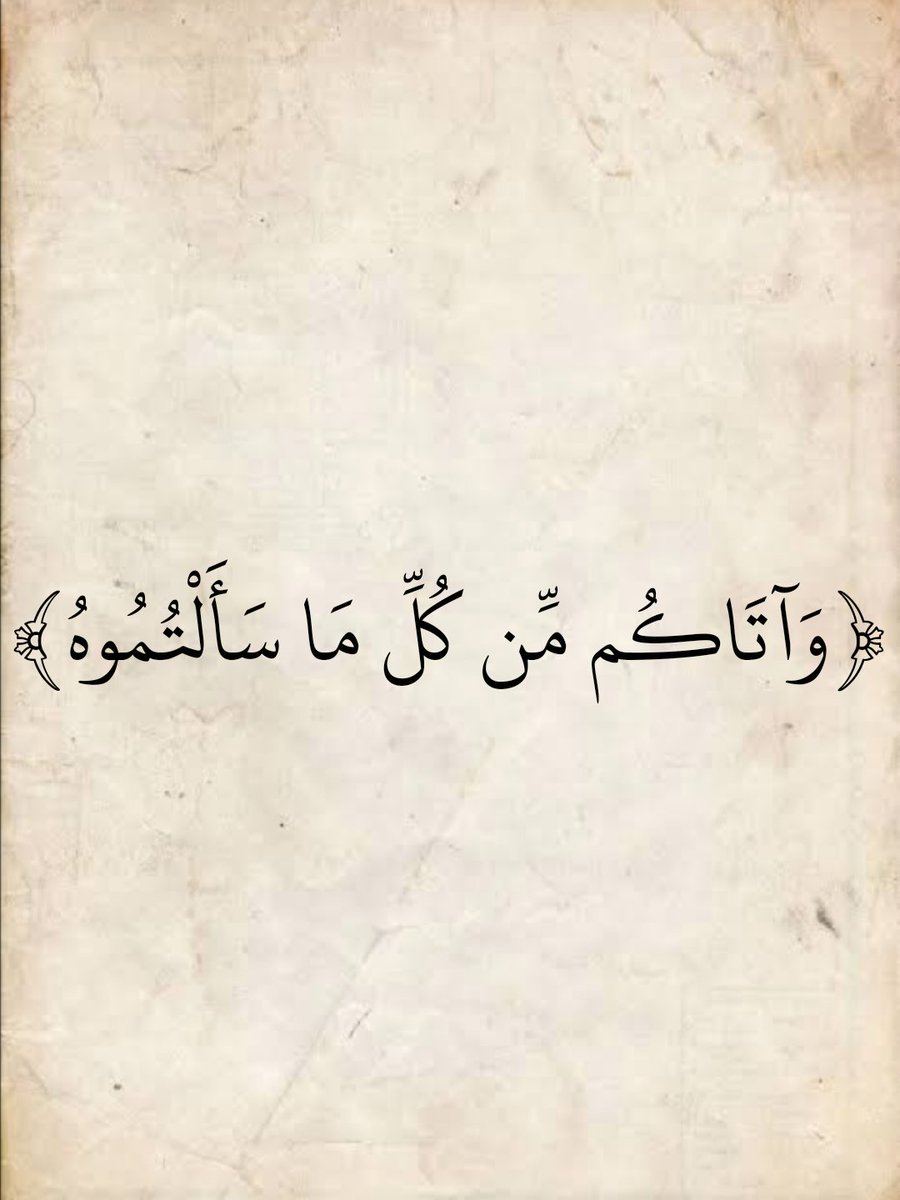 ﴿وَآتَاكُم مِّن كُلِّ مَا سَأَلْتُمُوهُ﴾